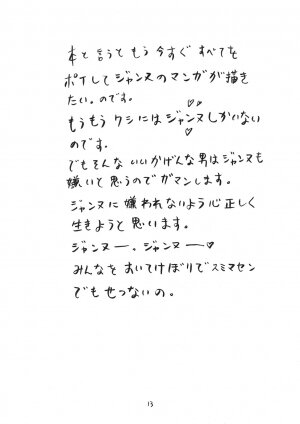 本と言うともう今すぐすべてを
ポイしてジャンヌのマンガが描き
たい。のです。
もうもうワシにはジャンヌしかいない
のです。
でもそんないいかげんな男はジャンヌも
嫌いと思うのでガマンします。
ジャンヌに嫌われないよう心正しく
生きようと思います。
ジャンヌー、ジャンヌー♡
みんなをおいてけぼりでスミマセン
でもせつないの。
13